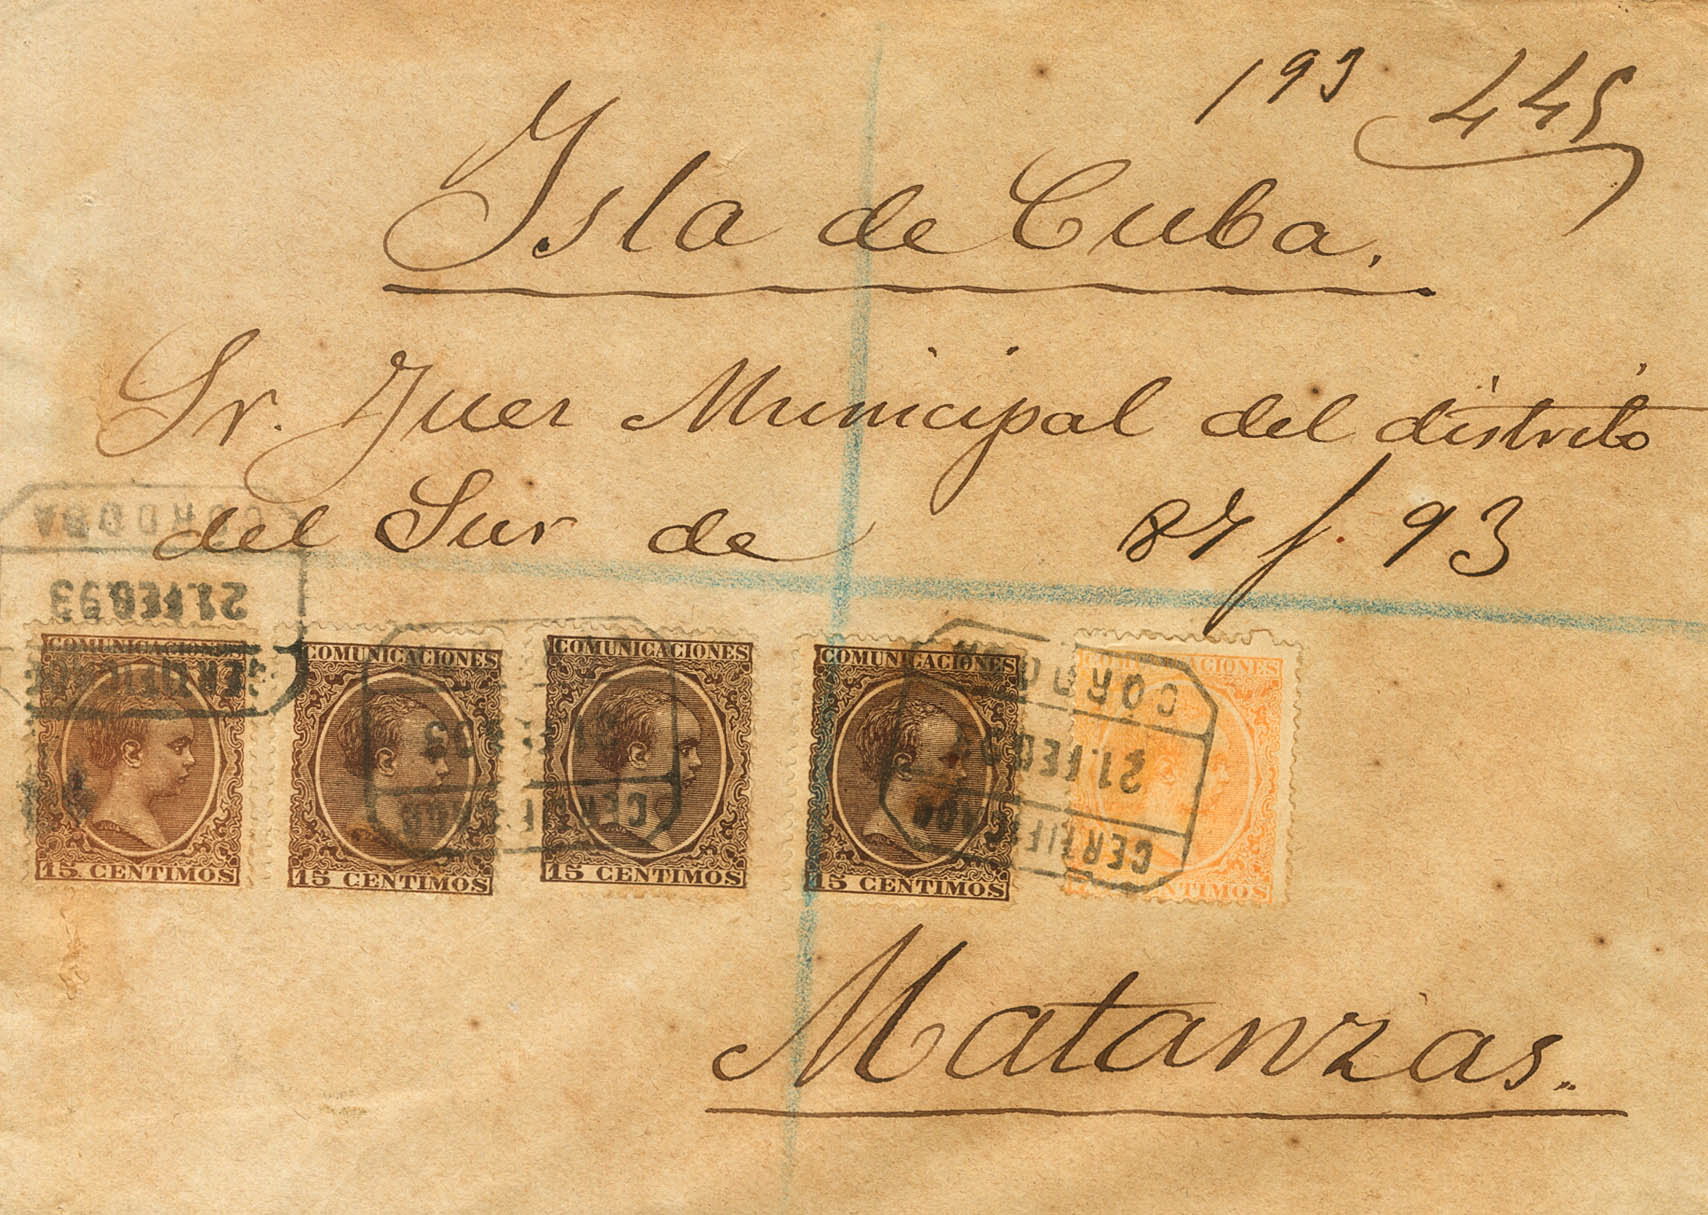 193 445
Isla de Cuba.
Sr. Juez Municipal del distrito
del Sur de
87 f. 93
CORDOBA
21.FEB.93
CERTIFICADO
COMUNICACIONES
15 CENTIMOS
COMUNICACIONES
15 CENTIMOS
COMUNICACIONES
15 CENTIMOS
COMUNICACIONES
15 CENTIMOS
CORDOBA
21.FEB.93
CERTIFICADO
COMUNICACIONES
CENTIMOS
Matanzas.